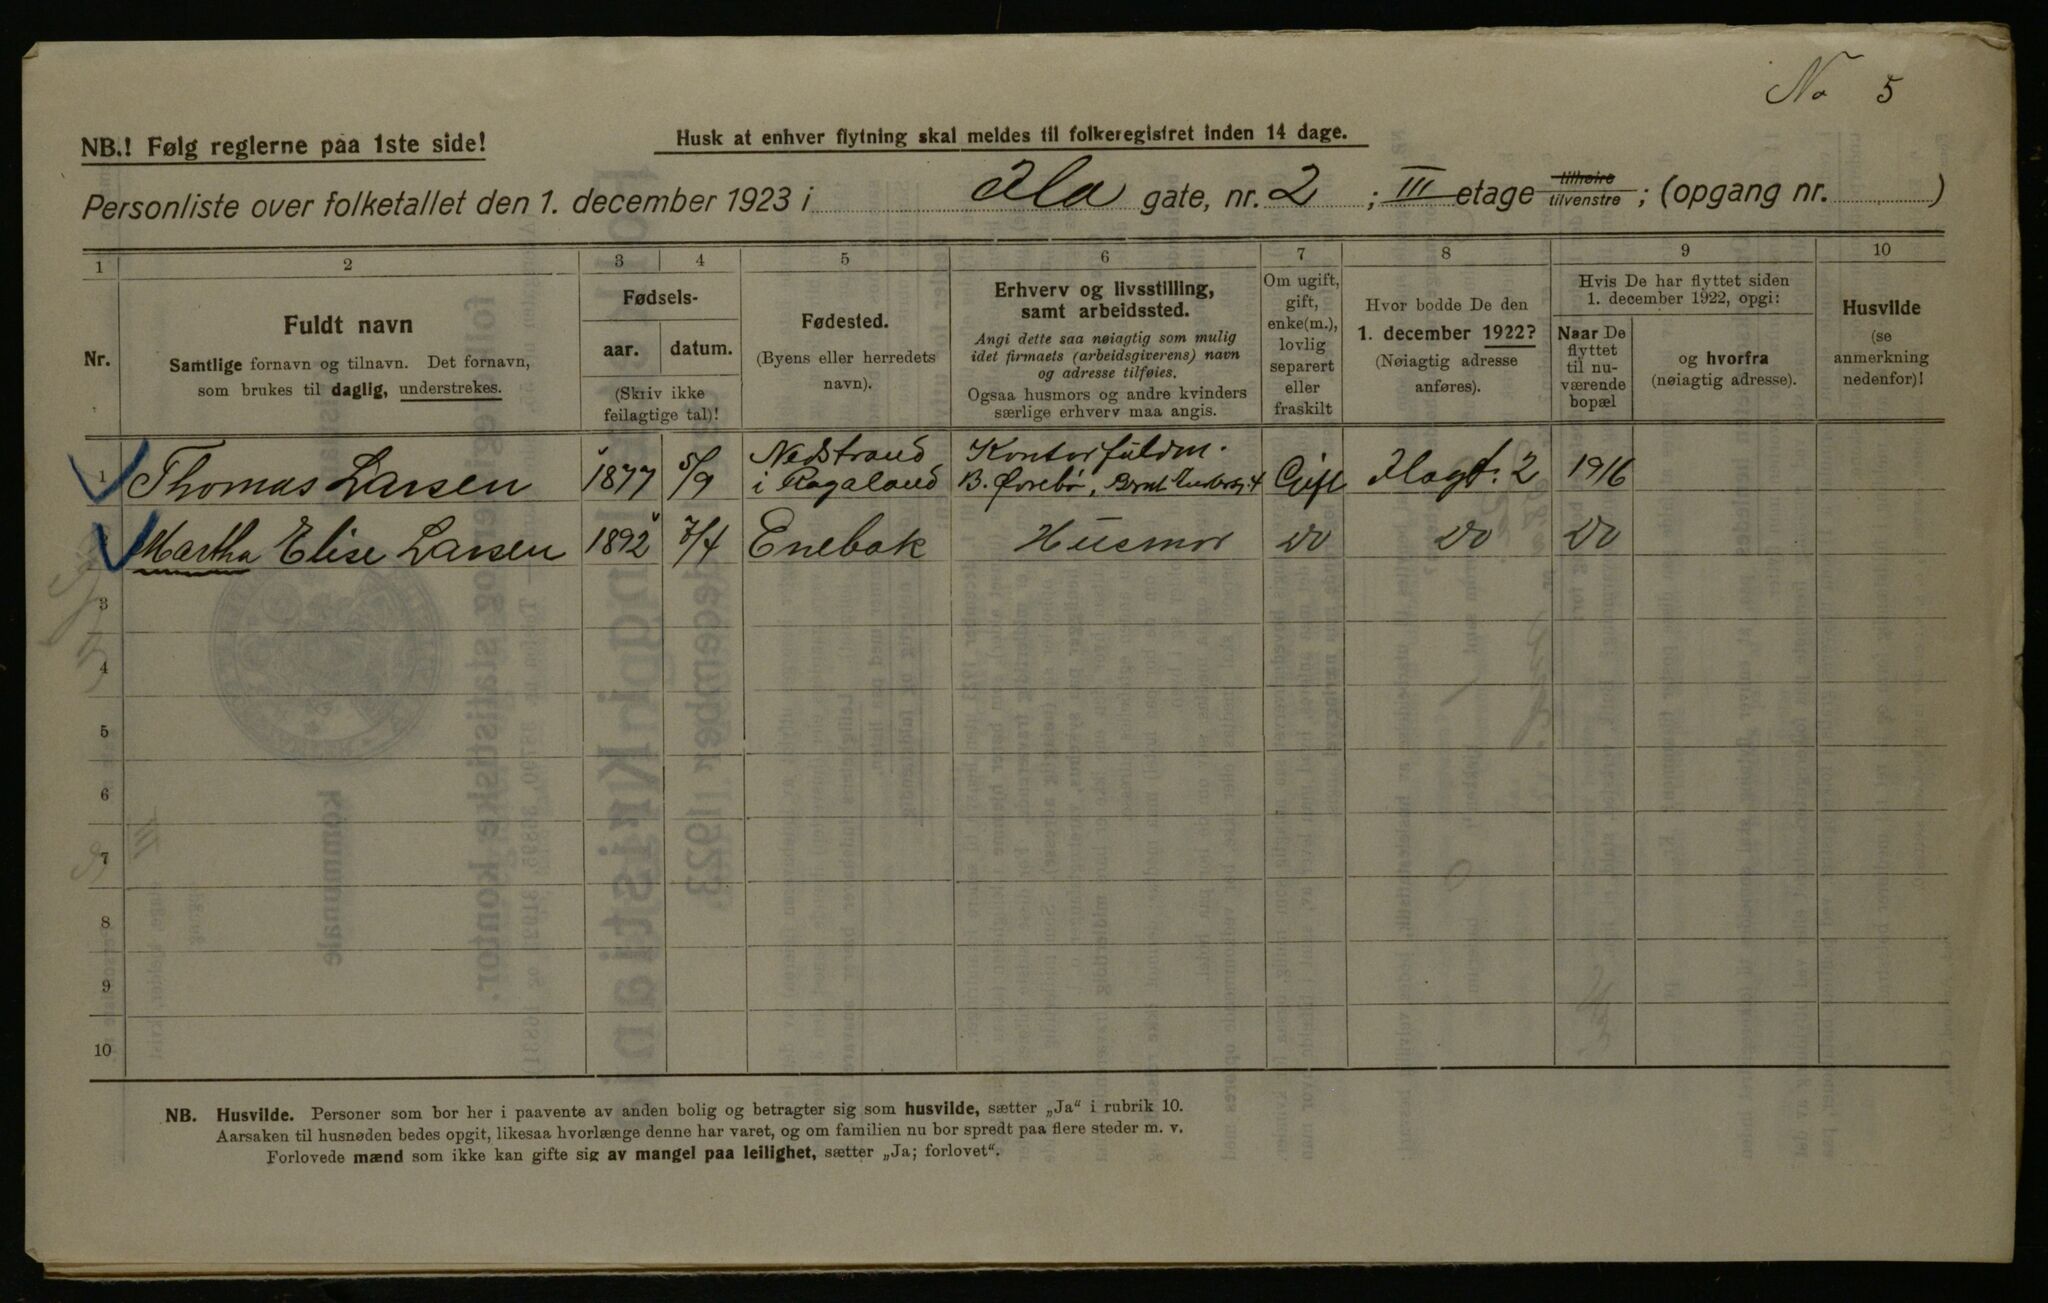 No 5
NB.! Følg reglerne paa 1ste side!
Husk at enhver flytning skal meldes til folkeregistret inden 14 dage.
Personliste over folketallet den 1. december 1923 i Ila gate, nr. 2 ; III etage tilhøire/tilvenstre ; (opgang nr. )
1 2 3 4 5 6 7 8 9 10
Nr.
Fuldt navn
Samtlige fornavn og tilnavn. Det fornavn,
som brukes til daglig, understrekes.
Fødsels-
aar. datum.
(Skriv ikke
feilagtige tal)!
Fødested.
(Byens eller herredets
navn).
Erhverv og livsstilling,
samt arbeidssted.
Angi dette saa nøiagtig som mulig
idet firmaets (arbeidsgiverens) navn
og adresse tilføies.
Ogsaa husmors og andre kvinders
særlige erhverv maa angis.
Om ugift,
gift,
enke(m.),
lovlig
separert
eller
fraskilt
Hvor bodde De den
1. december 1922?
(Nøiagtig adresse
anføres).
Hvis De har flyttet siden
1. december 1922, opgi:
Naar De
flyttet
til nu-
værende
bopæl
og hvorfra
(nøiagtig adresse).
Husvilde
(se
anmerkning
nedenfor)!
1 Thomas Larsen 1877 5/9 Nedstrand i Rogaland Kontorfuldm. B. Øvrebø, Gift Ilagt. 2 1916
Martha Elise Larsen 1892 7/4 Enebak Husmor Do Do Do
3
4
5
6
7
8
9
10
NB. Husvilde. Personer som bor her i paavente av anden bolig og betragter sig som husvilde, sætter „Ja“ i rubrik 10.
Aarsaken til husnøden bedes opgit, likesaa hvorlænge denne har varet, og om familien nu bor spredt paa flere steder m. v.
Forlovede mænd som ikke kan gifte sig av mangel paa leilighet, sætter „Ja; forlovet“.